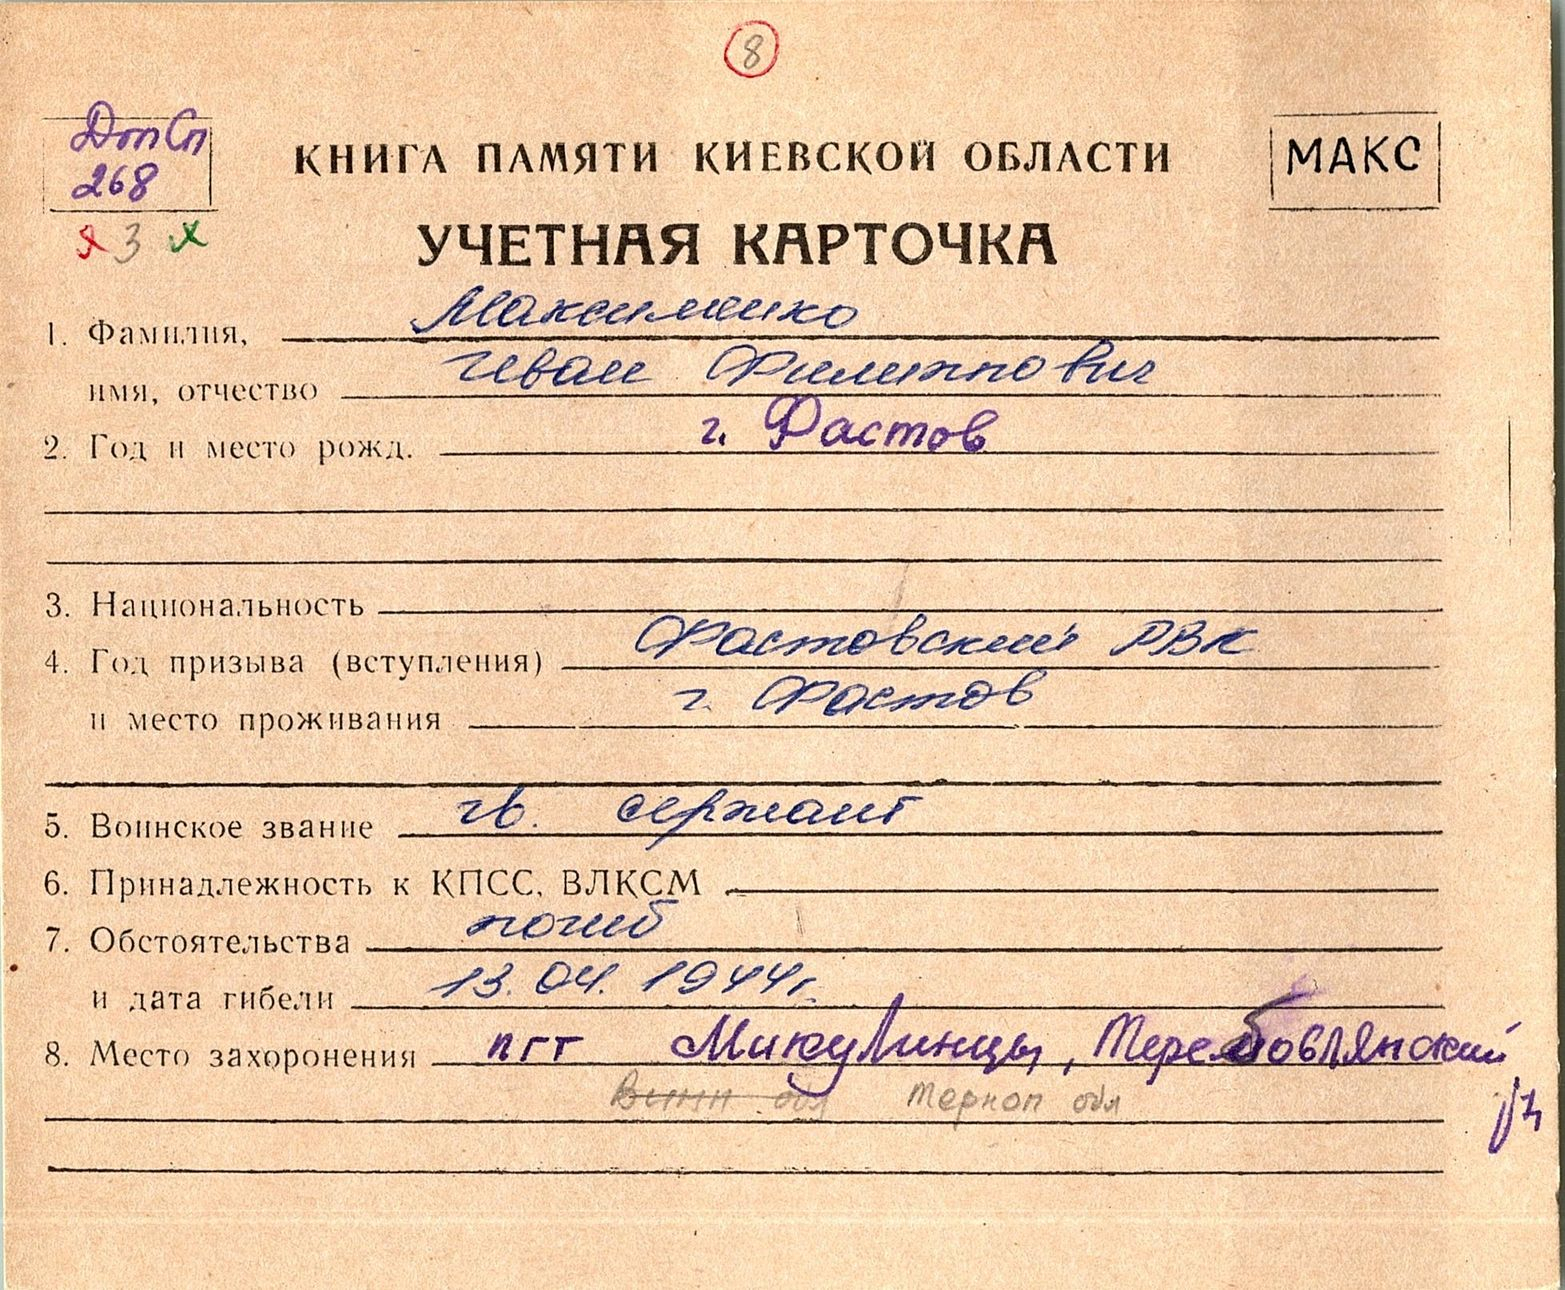 8
ДопСп
268
КНИГА ПАМЯТИ КИЕВСКОЙ ОБЛАСТИ
МАКС
З
УЧЕТНАЯ КАРТОЧКА
1. Фамилия, Максименко
имя, отчество Иван Филиппович
2. Год и место рожд. г. Фастов
3. Национальность
4. Год призыва (вступления) Фастовский РВК
и место проживания г. Фастов
5. Воинское звание гв. сержант
6. Принадлежность к КПСС, ВЛКСМ
7. Обстоятельства погиб
и дата гибели 13.04.1944г.
8. Место захоронения пгт Микулинцы, Теребовлянский
Винн обл Терноп обл